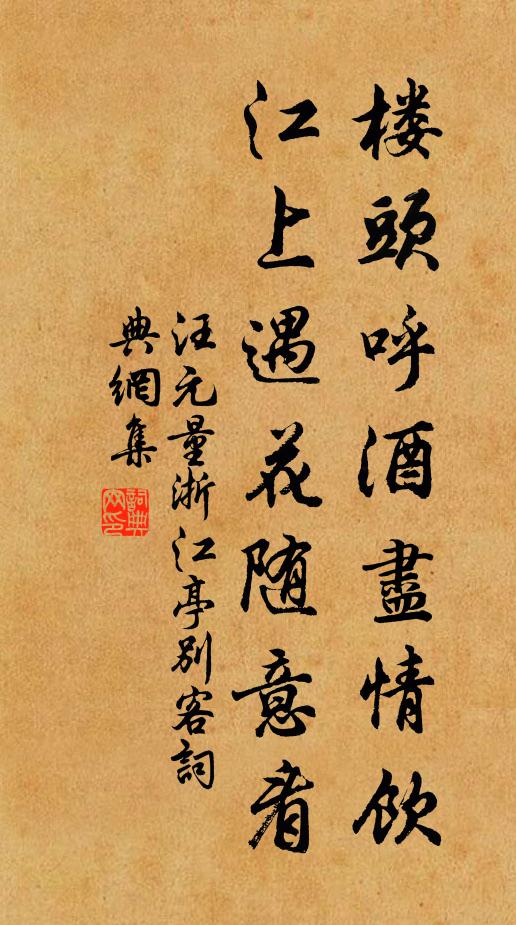 楼頭呼酒盡情飲
江上遇花随意看
汪元量浙江亭别客詞
典網集
詞典网印